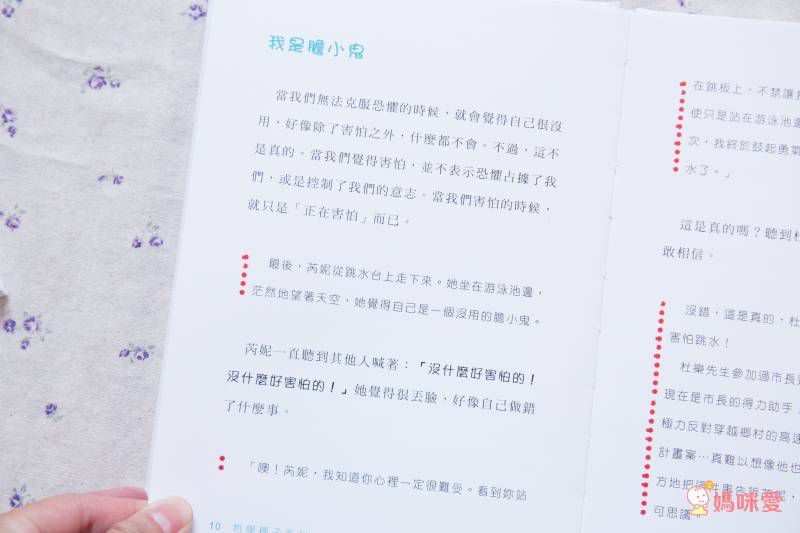 我是膽小鬼
當我們無法克服恐懼的時候，就會覺得自己很沒
用，好像除了害怕之外，什麼都不會。不過，這不
是真的。當我們覺得害怕，並不表示恐懼占據了我
們，或是控制了我們的意志。當我們害怕的時候，
就只是「正在害怕」而已。
最後，芮妮從跳水台上走下來。她坐在游泳池邊，
茫然地望著天空，她覺得自己是一個沒用的膽小鬼。
芮妮一直聽到其他人喊著：「沒什麼好害怕的！
沒什麼好害怕的！」她覺得很丟臉，好像自己做錯
了什麼事。
「噢！芮妮，我知道你心裡一定很難受。看到妳站
10
在跳板上，不禁讓
使只是站在游泳池邊
次，我終於鼓起勇氣
水了。」
這是真的嗎？聽到
敢相信。
沒錯，這是真的，杜
害怕跳水！
杜樂先生參加過市長
現在是市長的得力助手，
極力反對穿越鄉村的高速
計畫案…真難以想像他也
方地把這件事告訴芮妮，
可思議
媽咪愛